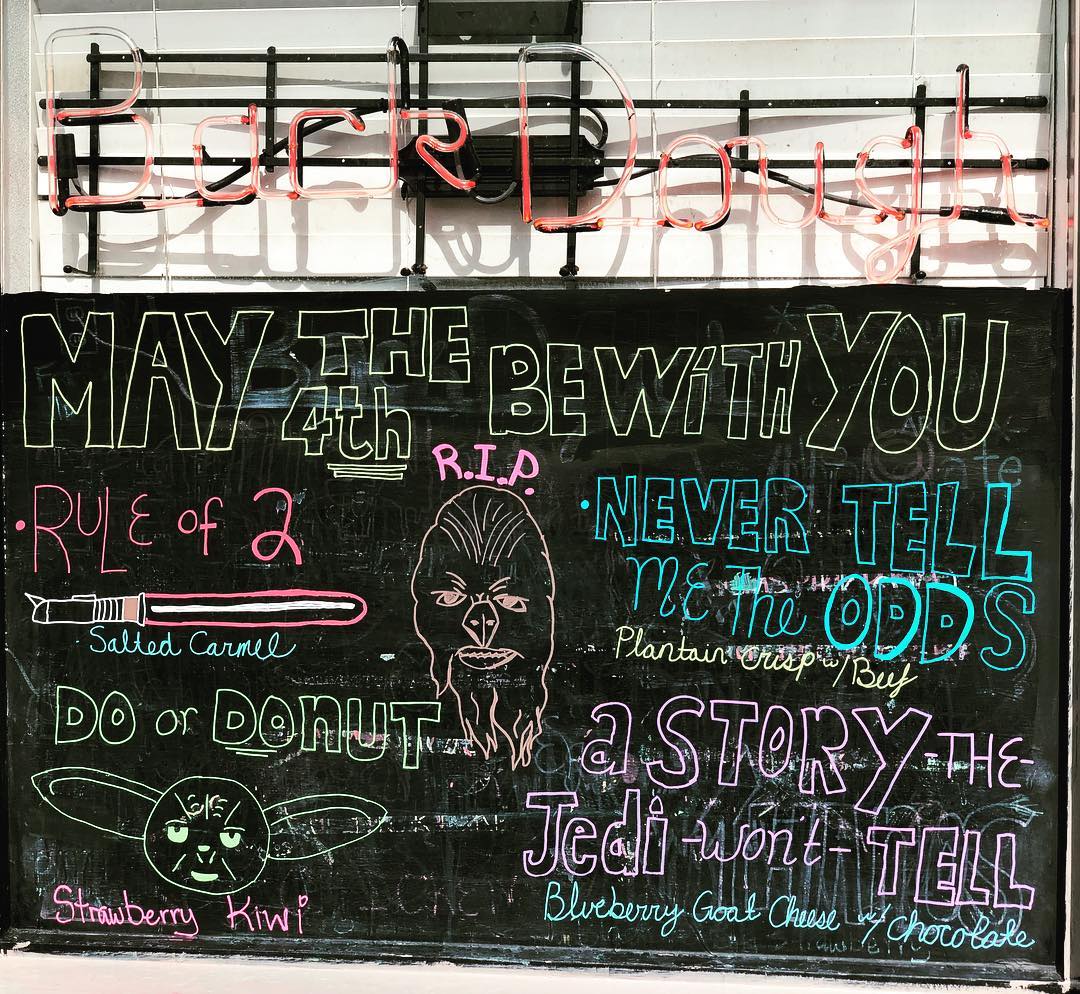 Back Dough
MAY THE 4th BE WiTH YOU
R.I.P.
• RULE of 2
Salted Carmel
• NEVER TELL
ME The ODDS
Plantain Crisp w/ Beef
DO or DONUT
Strawberry Kiwi
a STORY -THE-
Jedi -won't- TELL
Blueberry Goat Cheese w/ Chocolate